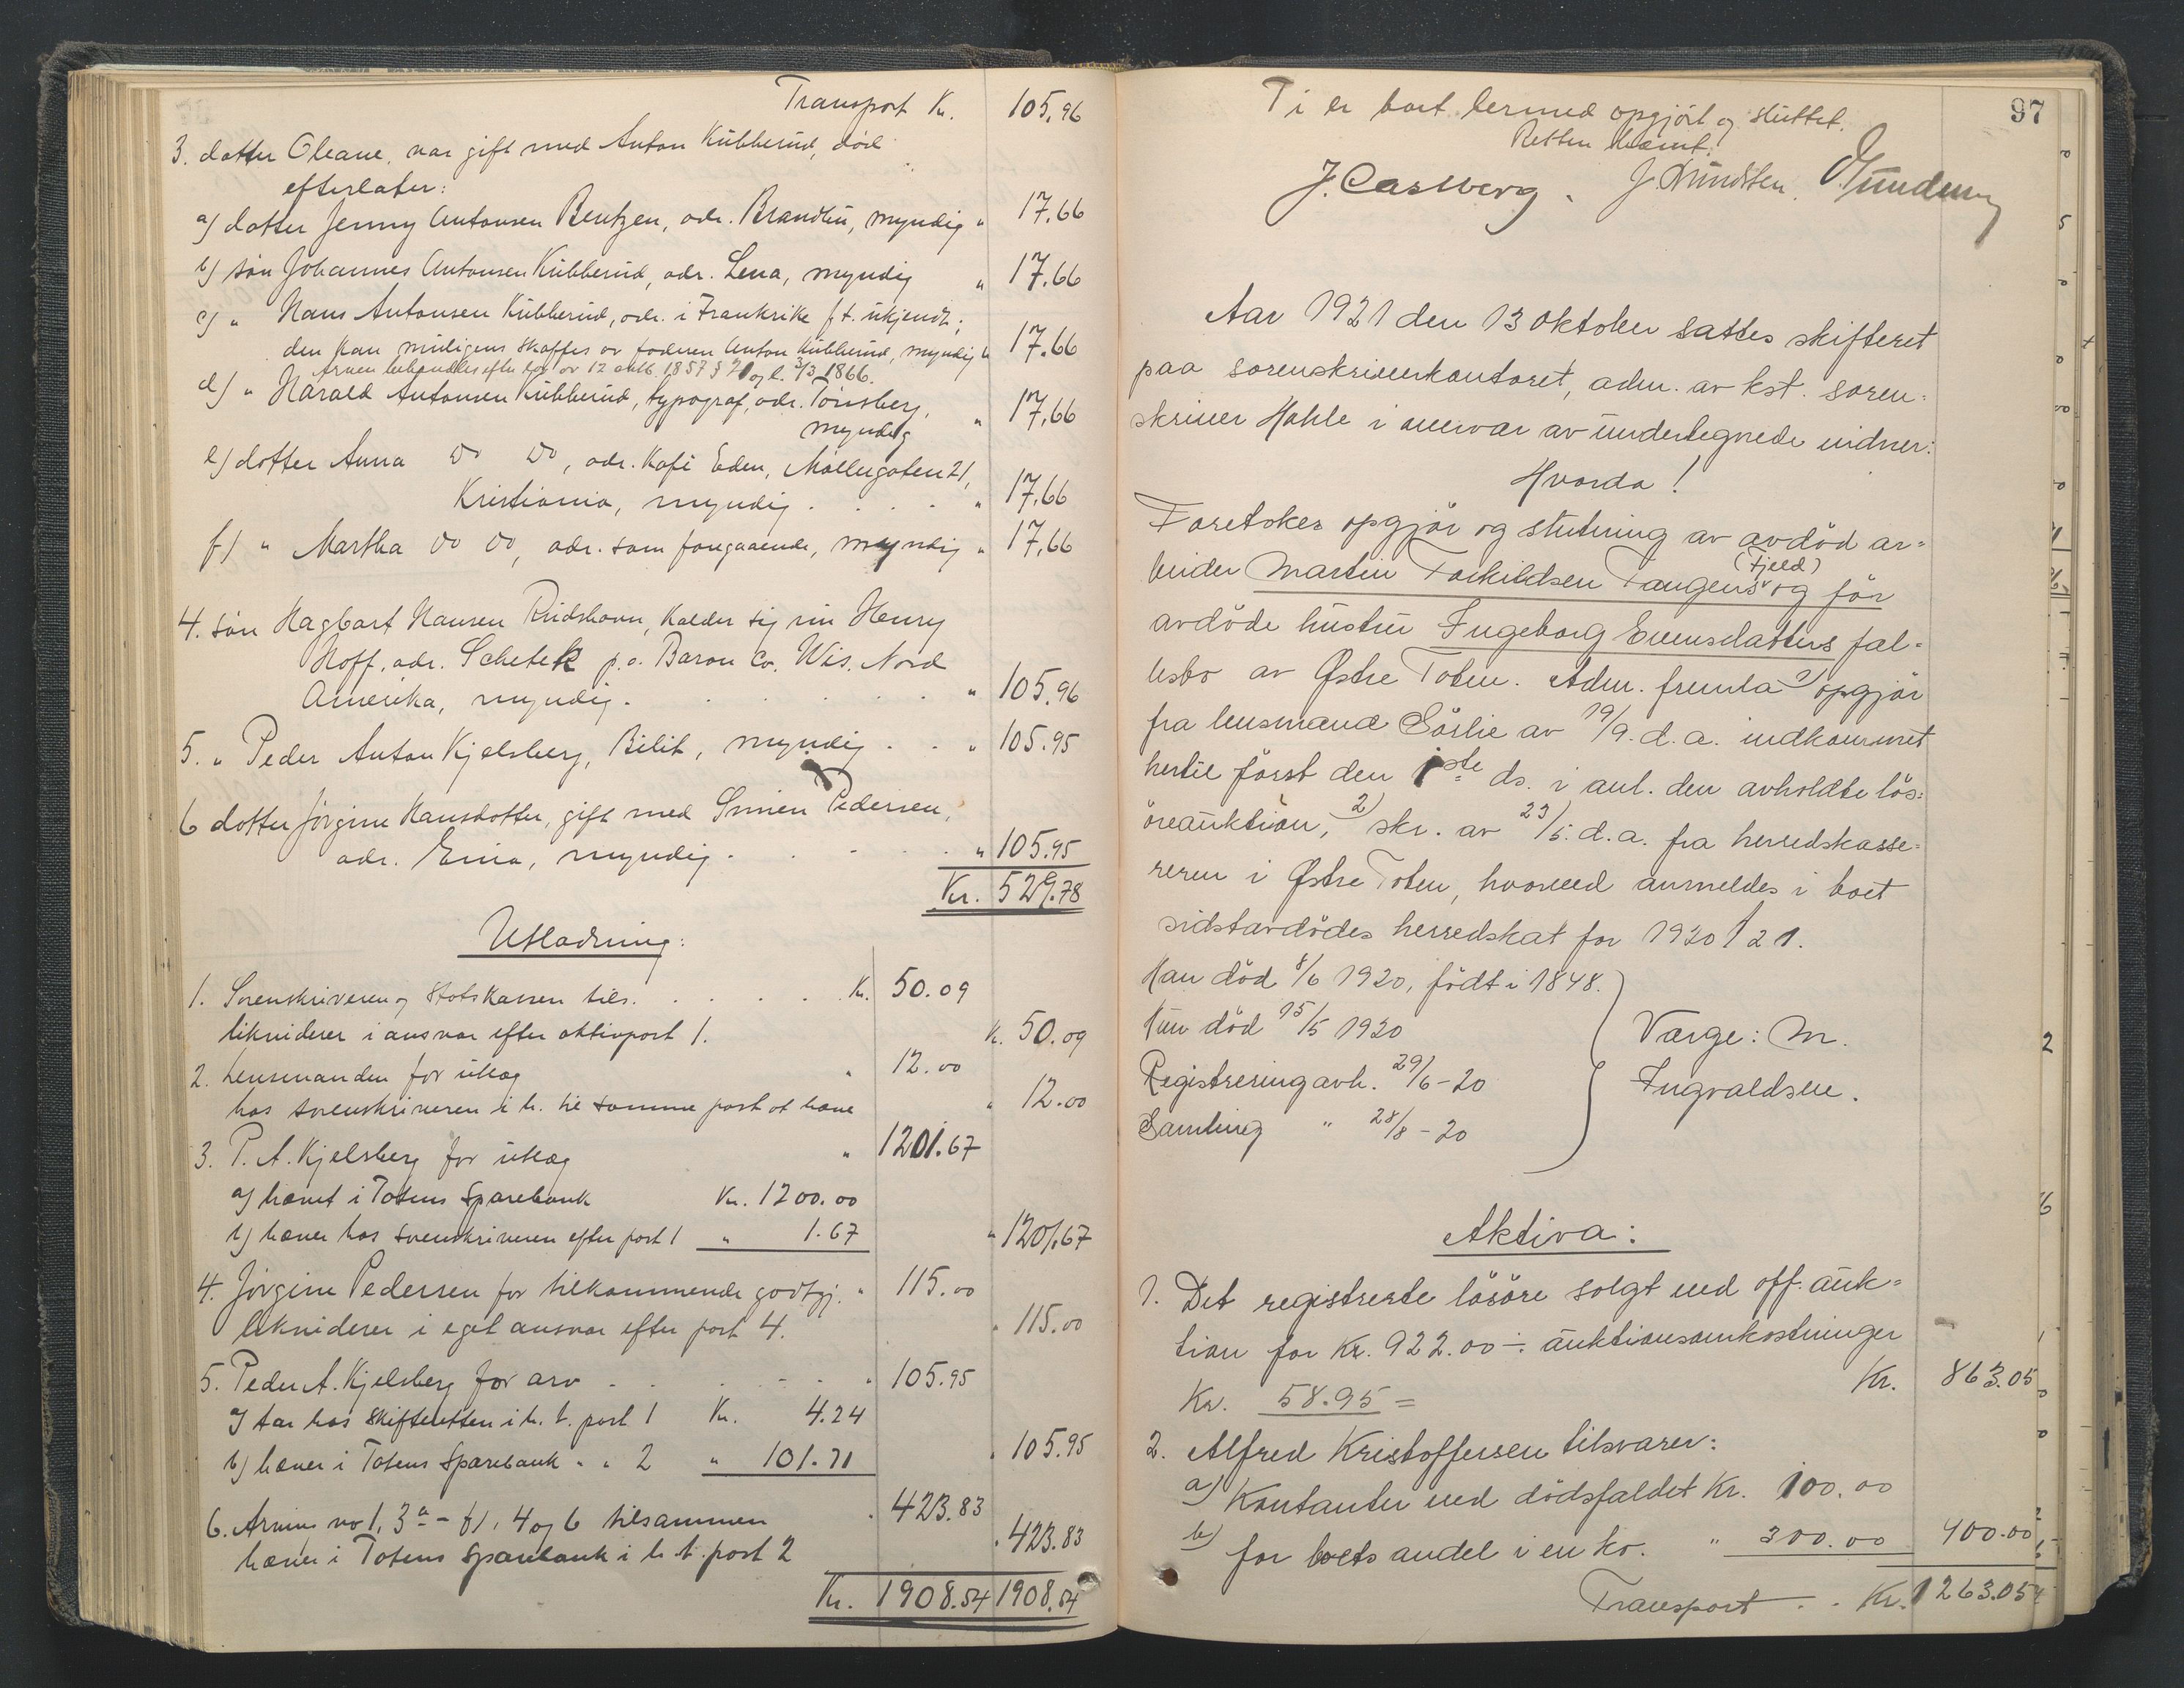 Transport Kr. 105,96
3. datter Oleane, var gift med Anton Kubberud, död
efterlater:
a) datter Jenny Antonsen Bentzen, adr. Brandbu, myndig " 17,66
b) sön Johannes Antonsen Kubberud, adr. Lena, myndig " 17,66
c) " Hans Antonsen Kubberud, adr. i Frankrike f.t. ukjendt;
den kan muligens skaffes av faderen Anton Kubberud, myndig " 17,66
Arven behandles efter lov av 12 oktb. 1857 § 21 og l. 3/3 1866.
d) " Harald Antonsen Kubberud, typograf, adr. Tönsberg, " 17,66
myndig
e) datter Anna do do, adr. Kafé Eden, Möllergaten 21,
Kristiania, myndig . . . . " 17,66
f) " Martha do do, adr. som foregaaende, myndig " 17,66
4. sön Hagbart Hansen Rudshavn, kalder sig nu Henry
Hoff, adr. Schetek p.o. Baron Co. Wis. Nord
Amerika, myndig . . . . . . " 105,96
5. " Peder Anton Kjelsberg, Bilit, myndig . . " 105.95
6 datter Jörgine Hansdatter, gift med Simen Pedersen,
adr. Eina, myndig . . . . . " 105.95
Kr. 529.78
Utlodning:
1. Sorenskriveren og Statskassen tils. . . . . . Kr. 50.09
likviderer i ansvar efter aktivpost 1. Kr. 50.09
2. Lensmanden for utlæg " 12.00
hos sorenskriveren i h. til samme post at hæve " 12.00
3. P. A. Kjelsberg for utlæg " 1201.67
a) hævet i Totens Sparebank Kr. 1200.00
b) hæver hos sorenskriveren efter post 1 " 1.67 " 1201.67
4. Jörgine Pedersen for tilkommende godtgj. " 115.00
likviderer i eget ansvar efter post 4. " 115.00
5. Peder A. Kjelsberg for arv . . . . . " 105.95
a) tar hos skifteretten i h. t. post 1 Kr. 4.24
b) hæver i Totens Sparebank " " 2 " 101.71 " 105.95
6. Arving no 1, 3 a - f), 4 og 6 tilsammen " 423.83
hæver i Totens Sparebank i h. t. post 2 " 423.83
Kr. 1908.54 1908.54
97
Ti er boet hermed opgjört og sluttet.
Retten hævet.
J. Castberg. J. Sundsten.
Aar 1921 den 13 oktober sattes skifteret
paa sorenskriverkontoret, adm. av kst. soren-
skriver Hohle i overvær av undertegnede vidner:
Hvorda!
Foretokes opgjör og slutning av avdöd ar-
beider Martin Torkildsen Tangens (Fjeld) og för
avdöde hustru Ingeborg Evensdatters fæl-
lesbo av Østre Toten. Adm. fremla 1) opgjör
fra lensmand Sörlie av 19/9. d.a. indkommet
hertil först den 1ste ds. i anl. den avholdte lös-
öreauktion, 2) skr. av 23/5. d.a. fra herredskasse-
reren i Østre Toten, hvorved anmeldes i boet
sidstavdödes herredskat for 1920/21.
Han död 8/6 1920, födt i 1848.
Hun död 15/5 1920
Værge: M.
Registrering avh. 29/6-20
Ingvaldsen.
Samling " 28/8-20
Aktiva:
1. Det registrerte lösöre solgt ved off. auk-
tion for Kr. 922.00 ÷ auktionsomkostninger
Kr. 58.95 = Kr. 863.05
2. Alfred Kristoffersen tilsvarer:
a) Kontanter ved dödsfaldet Kr. 100.00
b) for boets andel i en ko. " 300.00 400.00
Transport . . Kr. 1263.05